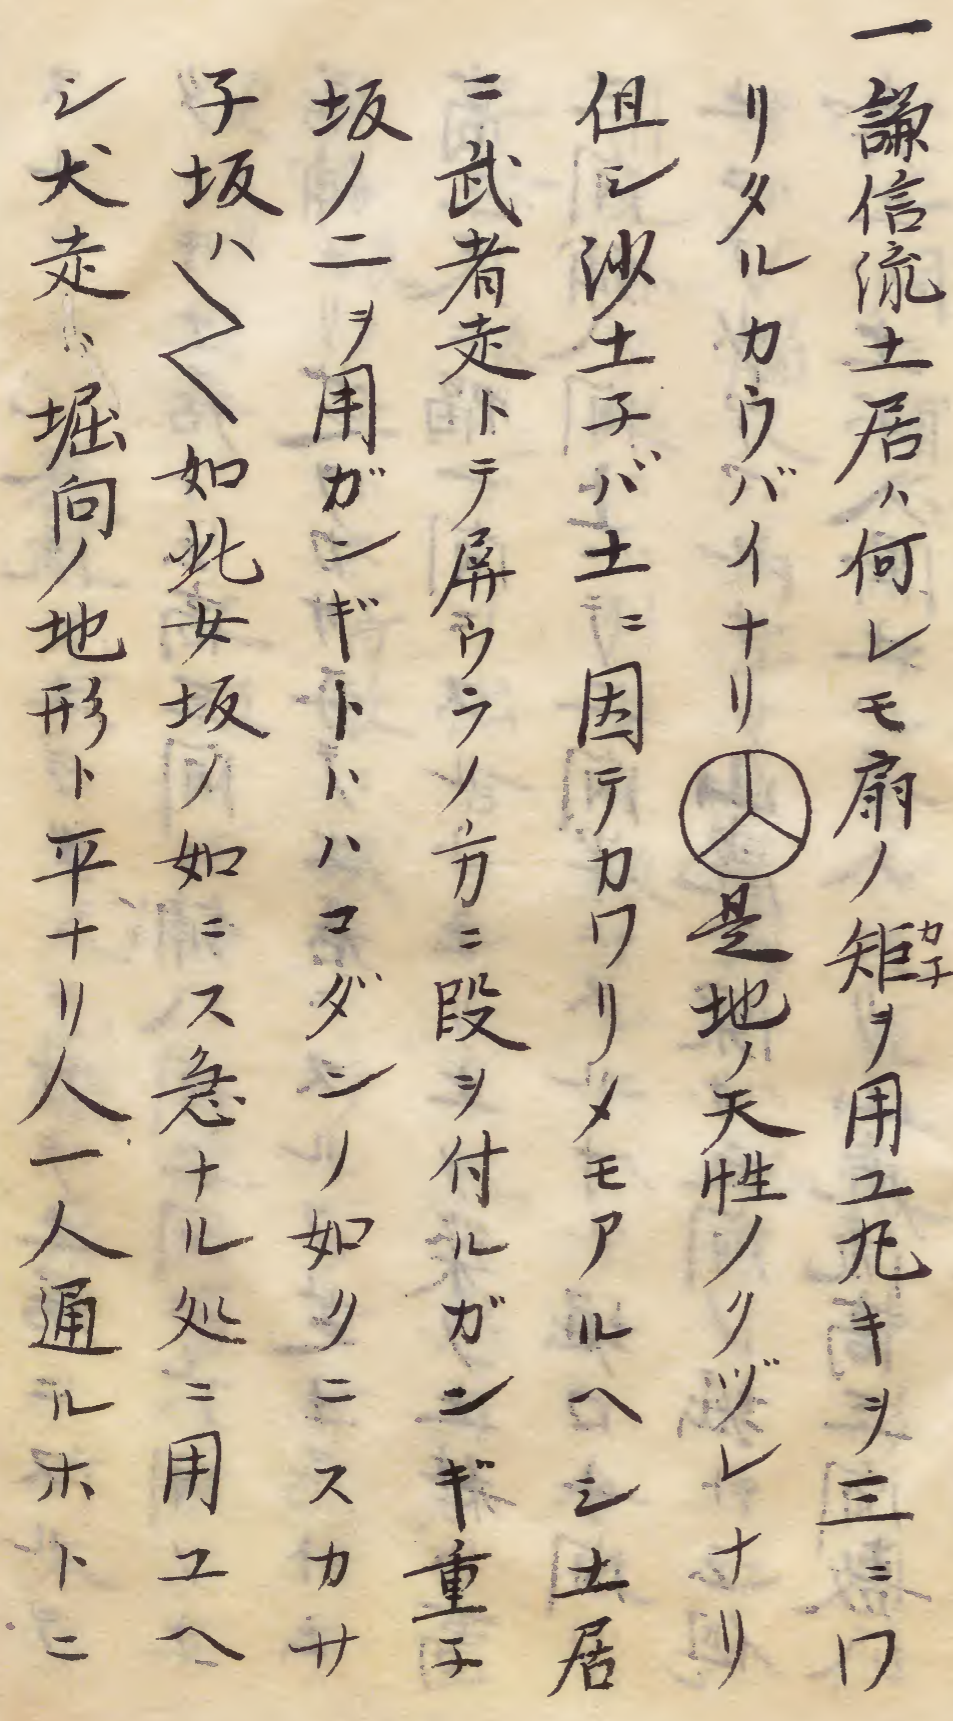 一謙信流土居ハ何レモ扇ノ矩カネヲ用ユ丸キヲ三ニワ
リタルカウバイナリ是地ノ天性ノクヅレナリ
但シ沙土子バ土ニ因テカワリメモアルヘシ土居
ニ武者走トテ屏ウラノ方ニ段ヲ付ルガンギ重子
坂ノ二ヲ用ガンギトハハコダンノ如クニスカサ
子坂ハ如此女坂ノ如ニス急ナル処ニ用ユヘ
シ犬走ハ堀向ノ地形ト平ナリ人一人通ルホトニ